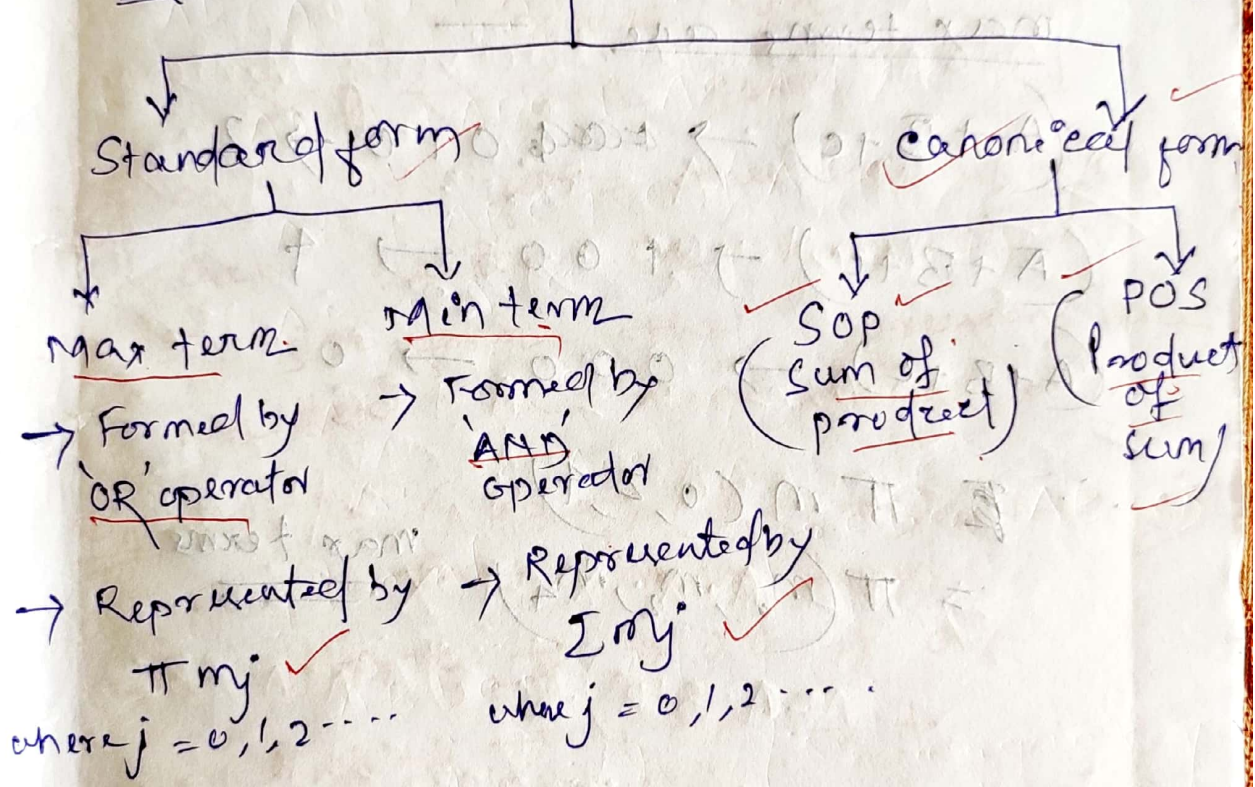 Standard form
Canonical form
Max term
→ Formed by
'OR' operator
→ Represented by
π mj
where j = 0, 1, 2 ....
Min term
→ Formed by
'AND'
operator
→ Represented by
Σ mj
where j = 0, 1, 2 ....
SOP
(Sum of
product)
POS
(Product
of
sum)